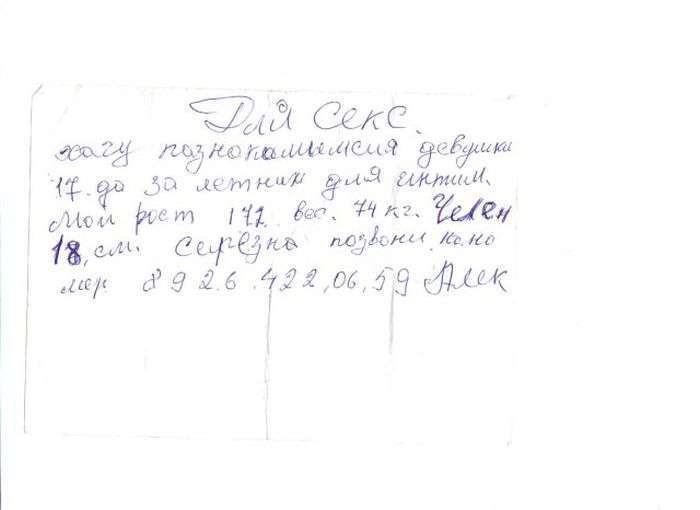 Для секс.
хачу познопамымсия девушка
17. до За летних для интим.
Мой рост 172 вес. 74 кг. Челен
18, см. Серезна позвони. по но
мер 8 92.6.422,06,59 Алек